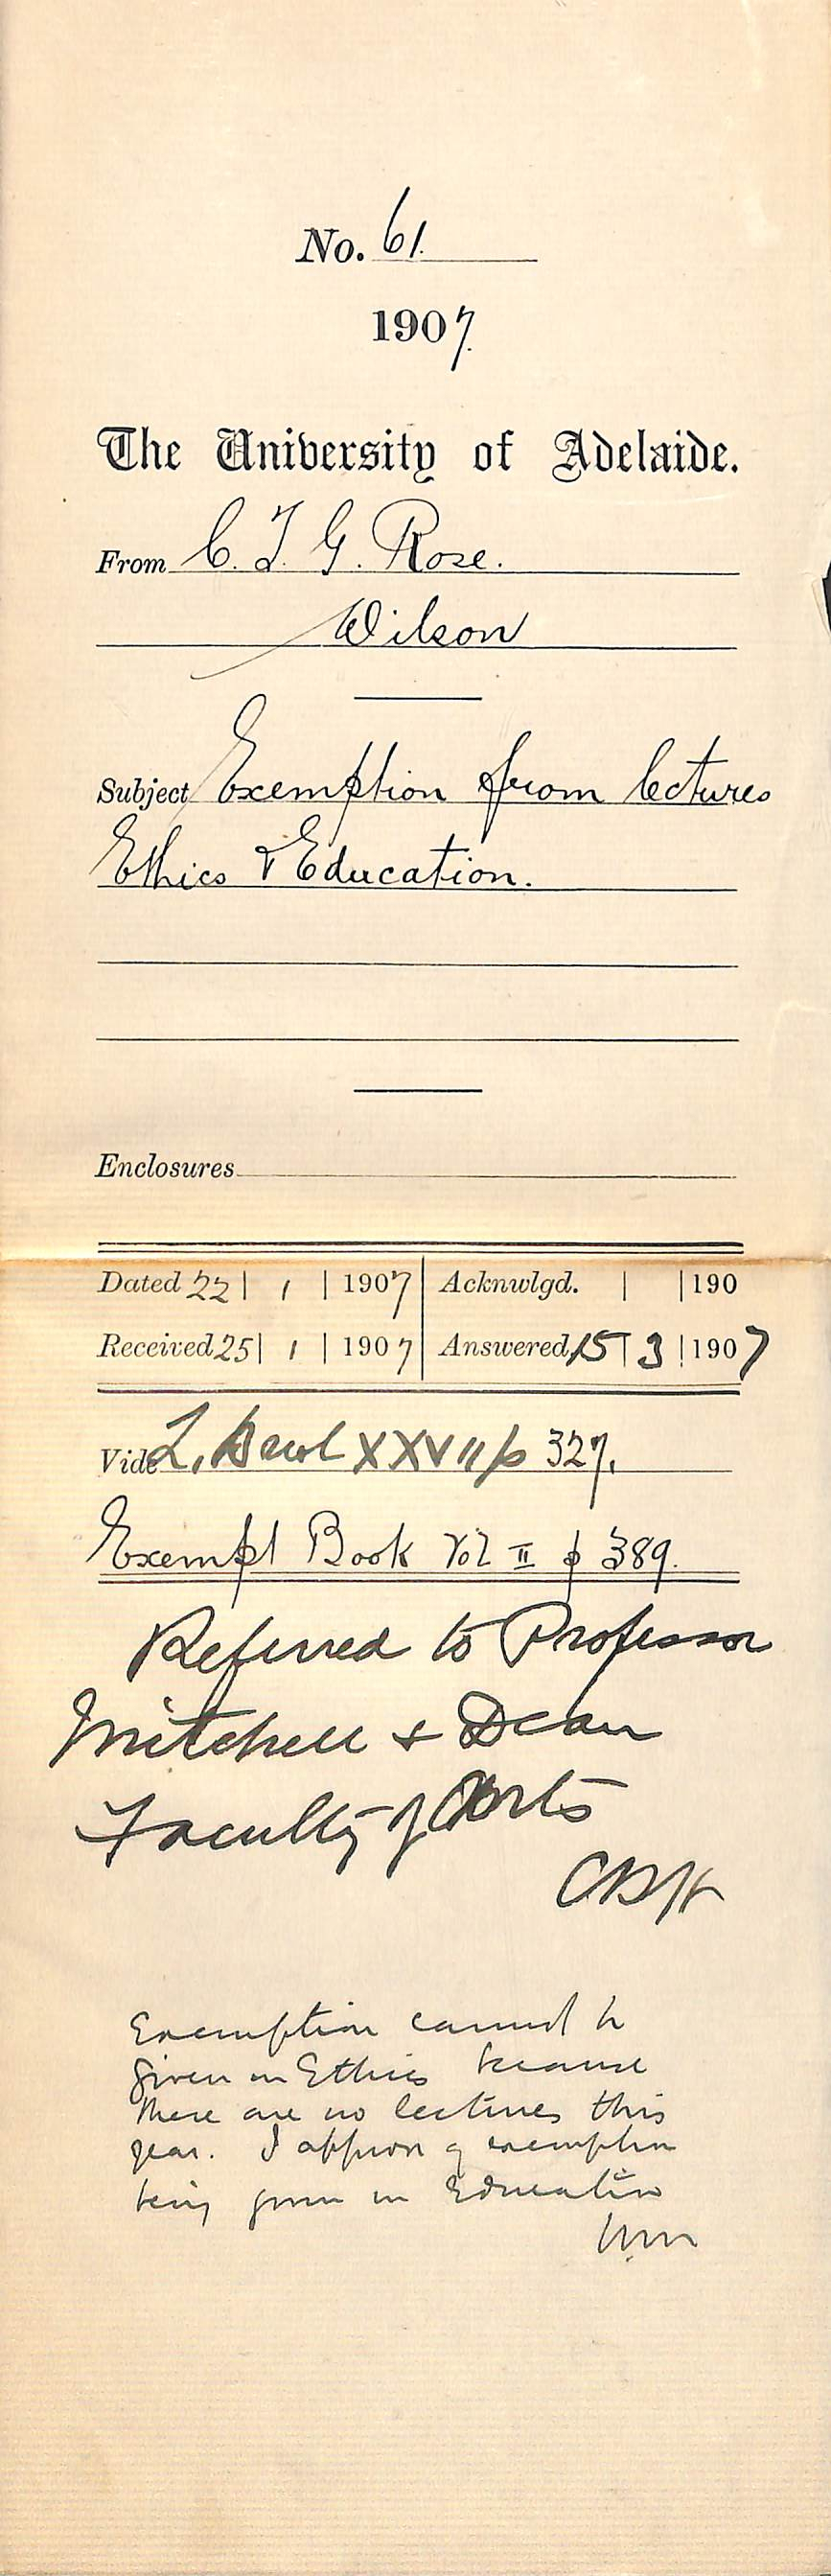 No. 61.
1907.
The University of Adelaide.
From C. T. G. Rose.
Wilson
Subject Exemption from lectures
Ethics & Education.
Enclosures
Dated 22 | 1 | 1907 Acknwlgd. | | 190
Received 25 | 1 | 1907 Answered 15 | 3 | 1907
Vide L. XXVII p 327.
Exempt Book Vol II p 389.
Referred to Professor
Mitchell & Dean
Faculty of Arts
CRH
Exemption cannot be
given in Ethics because
there are no lectures this
year. I approve of exemption
being given in Education
WM